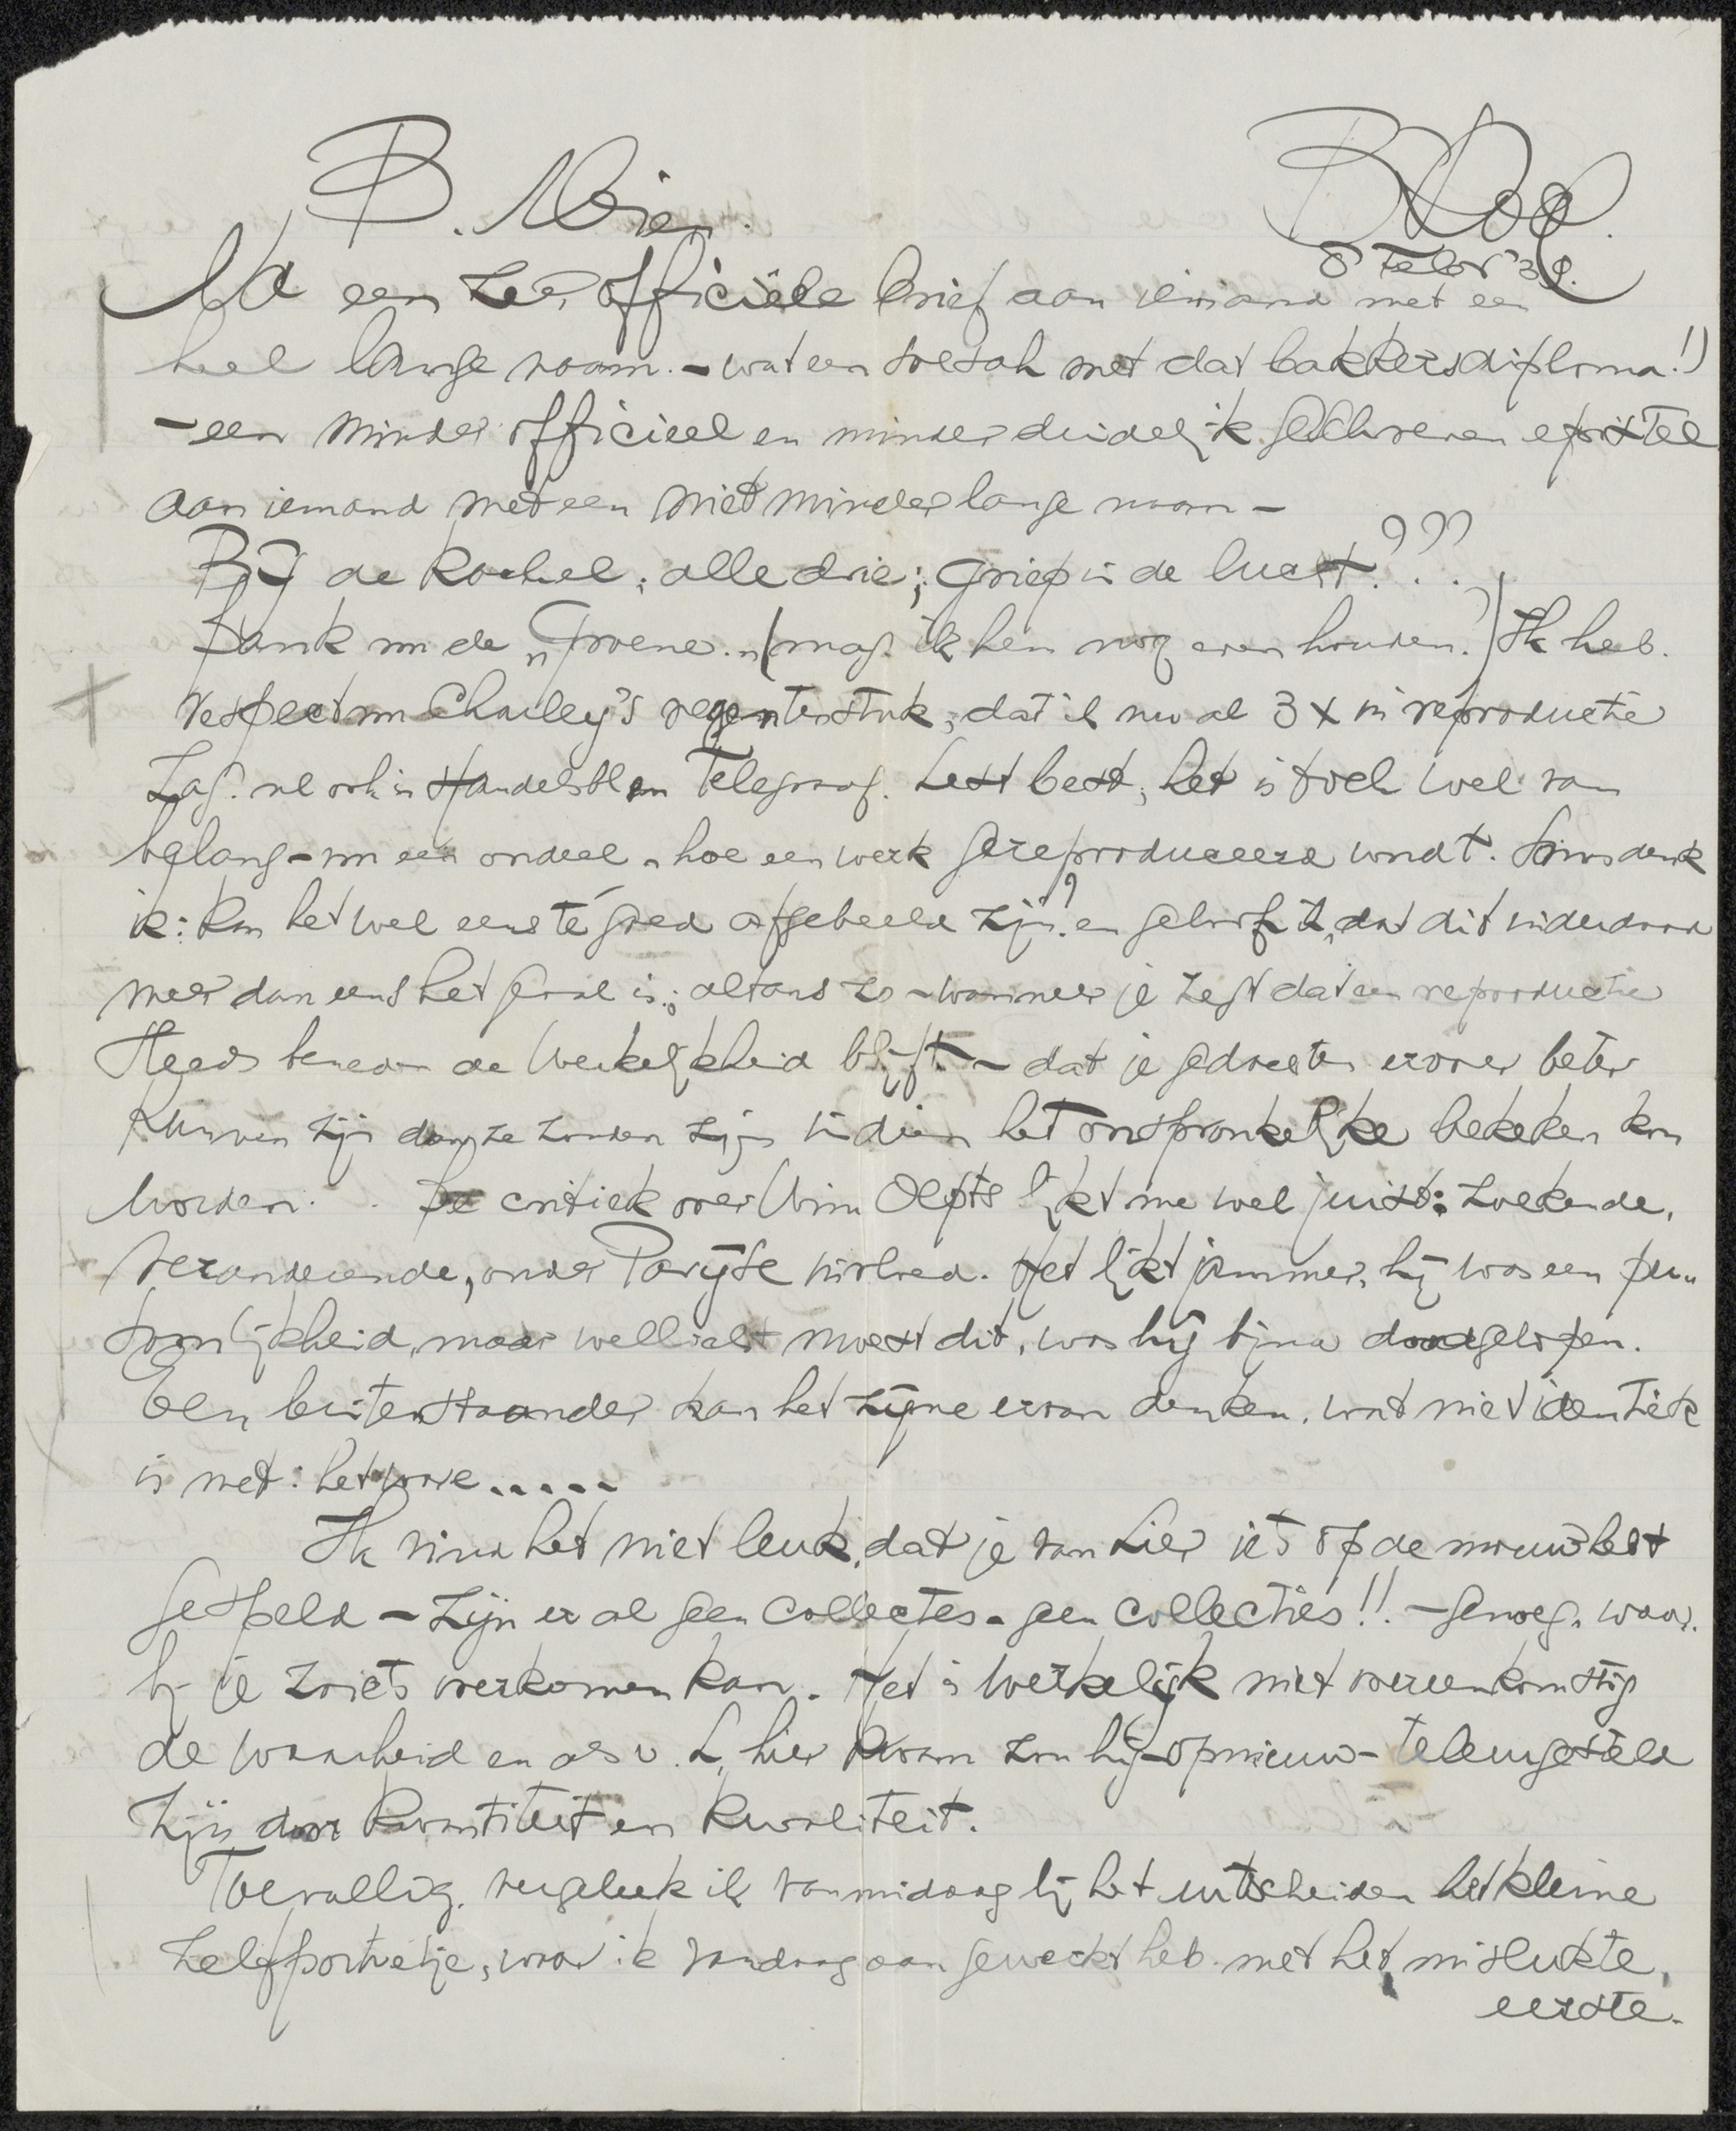 B. Mie.
8 Febr 39.
Na een zeer officiële brief aan iemand met een
heel lange naam. - wat een soesah met dat bakkersdiploma!)
- een minder officieel en minder duidelijk geschreven epistel
aan iemand met een niet minder lange naam -
Bij de kachel; alle drie; griep in de lucht? ? ?
Dank vr de „Groene." (mag ik hem nog even houden?) Ik heb
respect vr Charley's regentenstuk, dat ik nu al 3 x in reproductie
zag. nl ook in Handelsbl en Telegraaf. Lest best; het is toch wel van
belang - vr een oordeel - hoe een werk gereproduceerd wordt. Soms denk
ik: kan het wel eens té goed afgebeeld zijn? en geloof ik, dat dit inderdaad
meer dan eens het geval is; altans zo - wanneer je zegt dat een reproductie
steeds beneden de werkelijkheid blijft - dat je gedachten erover beter
kunnen zijn dan ze zouden zijn indien het oorspronkelijke bekeken kon
worden. De critiek over Wim Oepts lijkt me wel juist: zoekende,
veranderende, onder Parijse invloed. Het lijkt jammer, hij was een per-
soonlijkheid, maar wellicht moest dit, was hij bijna doodgelopen.
Een buitenstaander kan het zijne ervan denken, wat niet identiek
is met: het ware.....
Ik vind het niet leuk, dat je van Lier iets op de mouw hebt
gespeld - zijn er al geen collectes - geen collecties!! - genoeg, waar-
bij je zoiets overkomen kan. Het is werkelijk niet overeenkomstig
de waarheid en als v. L. hier kwam zou hij - opnieuw - teleurgesteld
zijn door kwantiteit en kwaliteit.
Toevallig vergeleek ik vanmiddag bij het uitscheiden het kleine
zelfportretje, waar ik vandaag aan gewerkt heb met het mislukte,
eerste.